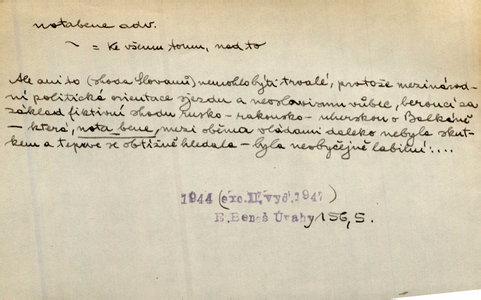 notabene adv.
~ = ke všemu tomu, nad to
Ale ani to (shoda Slovanů) nemohlo býti trvalé, protože mezinárod-
ní politická orientace sjezdu a neoslavismu vůbec, beroucí za
základ fiktivní shodu rusko-rakousko-uherskou o Balkáně
— která, nota bene, mezi oběma vládami daleko nebyla skut-
kem a teprve se obtížně hledala — byla neobyčejně labilní....
1944 (exc. II. vyd. 1947)
E. Beneš Úvahy 156, S.